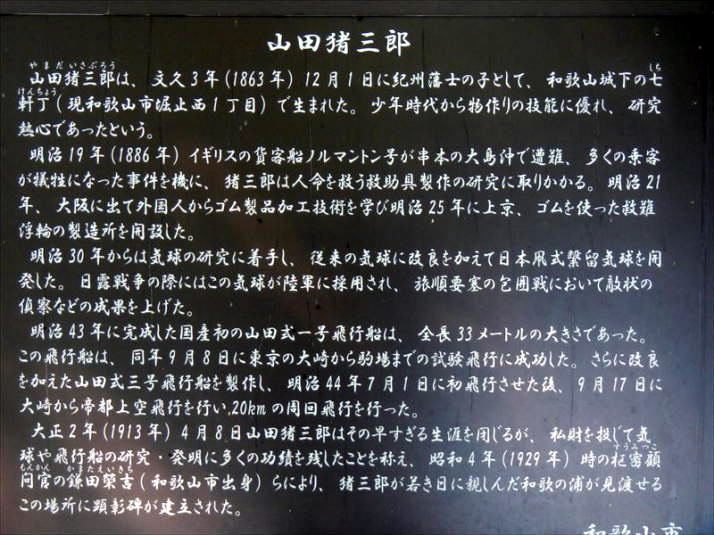 山田猪三郎
やまだいさぶろう
山田猪三郎は、文久3年(1863年)12月1日に紀州藩士の子として、和歌山城下の七
しち
けんちょう
軒丁(現和歌山市堀止西1丁目)で生まれた。少年時代から物作りの技能に優れ、研究
熱心であったという。
明治19年(1886年)イギリスの貨客船ノルマントン号が串本の大島沖で遭難、多くの乗客
が犠牲になった事件を機に、猪三郎は人命を救う救助具製作の研究に取りかかる。明治21
年、大阪に出て外国人からゴム製品加工技術を学び明治25年に上京、ゴムを使った救難
浮輪の製造所を開設した。
明治30年からは気球の研究に着手し、従来の気球に改良を加えて日本凧式繋留気球を開
発した。日露戦争の際にはこの気球が陸軍に採用され、旅順要塞の包囲戦において敵状の
偵察などの成果を上げた。
明治43年に完成した国産初の山田式一号飛行船は、全長33メートルの大きさであった。
この飛行船は、同年9月8日に東京の大崎から駒場までの試験飛行に成功した。さらに改良
を加えた山田式三号飛行船を製作し、明治44年7月1日に初飛行させた後、9月17日に
大崎から帝都上空飛行を行い,20kmの周回飛行を行った。
大正2年(1913年)4月8日山田猪三郎はその早すぎる生涯を閉じるが、私財を投じて気
球や飛行船の研究・発明に多くの功績を残したことを称え、昭和4年(1929年)時の枢密顧
すうみつこ
もんかん かまたえいきち
問官の鎌田榮吉(和歌山市出身)らにより、猪三郎が若き日に親しんだ和歌の浦が見渡せる
この場所に顕彰碑が建立された。
和歌山市